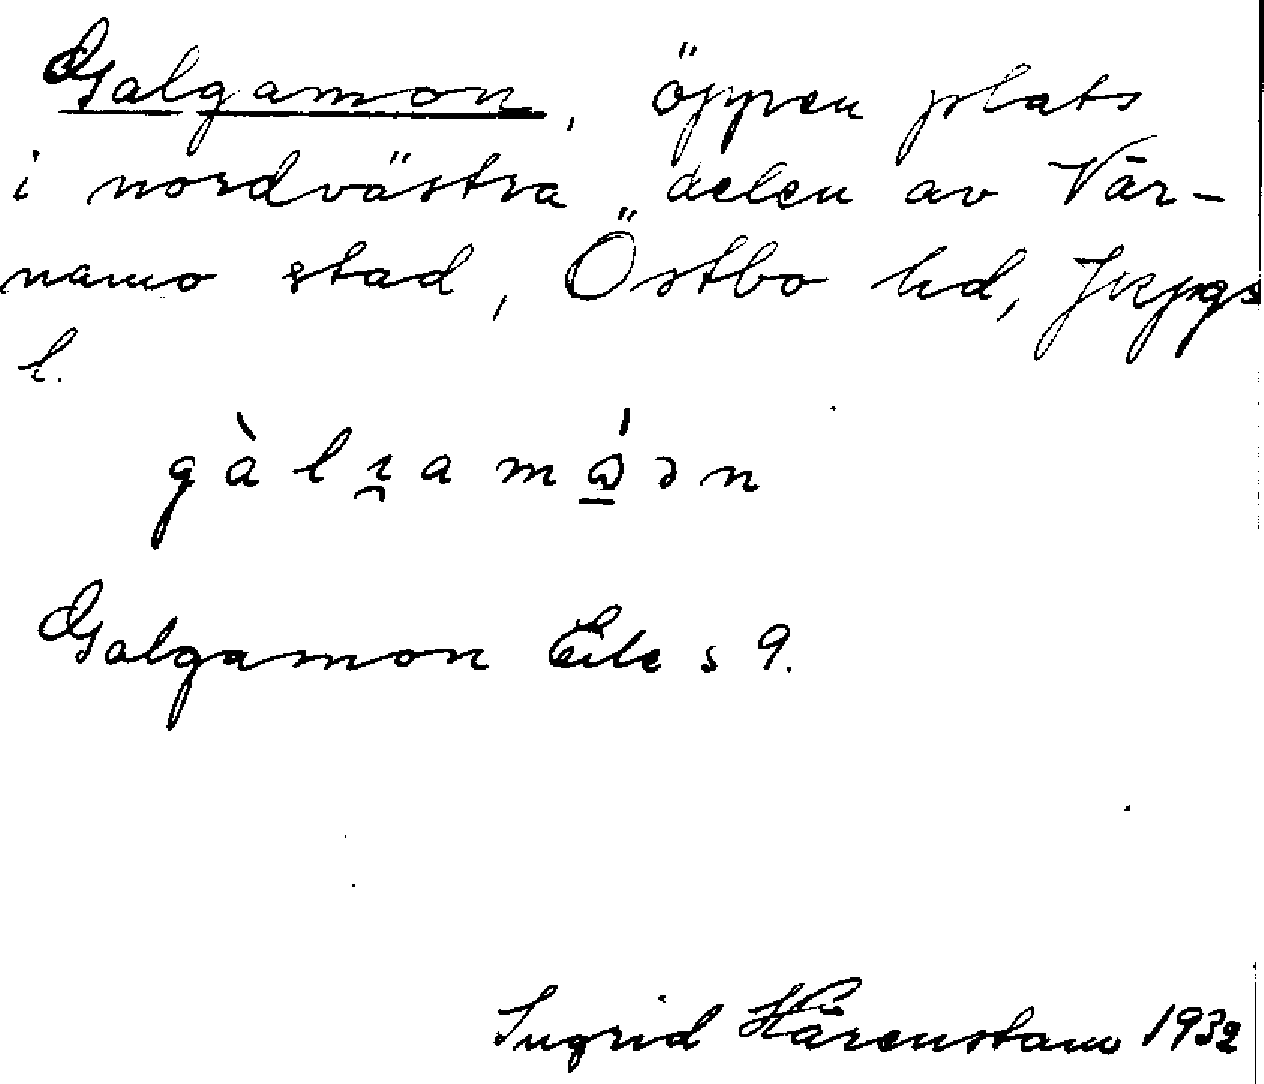 Galgamon, öppen plats
i nordvästra delen av Vär-
namo stad, Östbo hd, Jkpgs
l.
Galgamon Eik s 9.
Ingrid Härenstam 1932